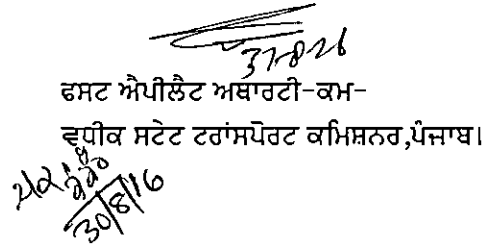 31-8-16
ਫਸਟ ਐਪੀਲੈਟ ਅਥਾਰਟੀ-ਕਮ-
ਵਧੀਕ ਸਟੇਟ ਟਰਾਂਸਪੋਰਟ ਕਮਿਸ਼ਨਰ,ਪੰਜਾਬ।
30/8/16